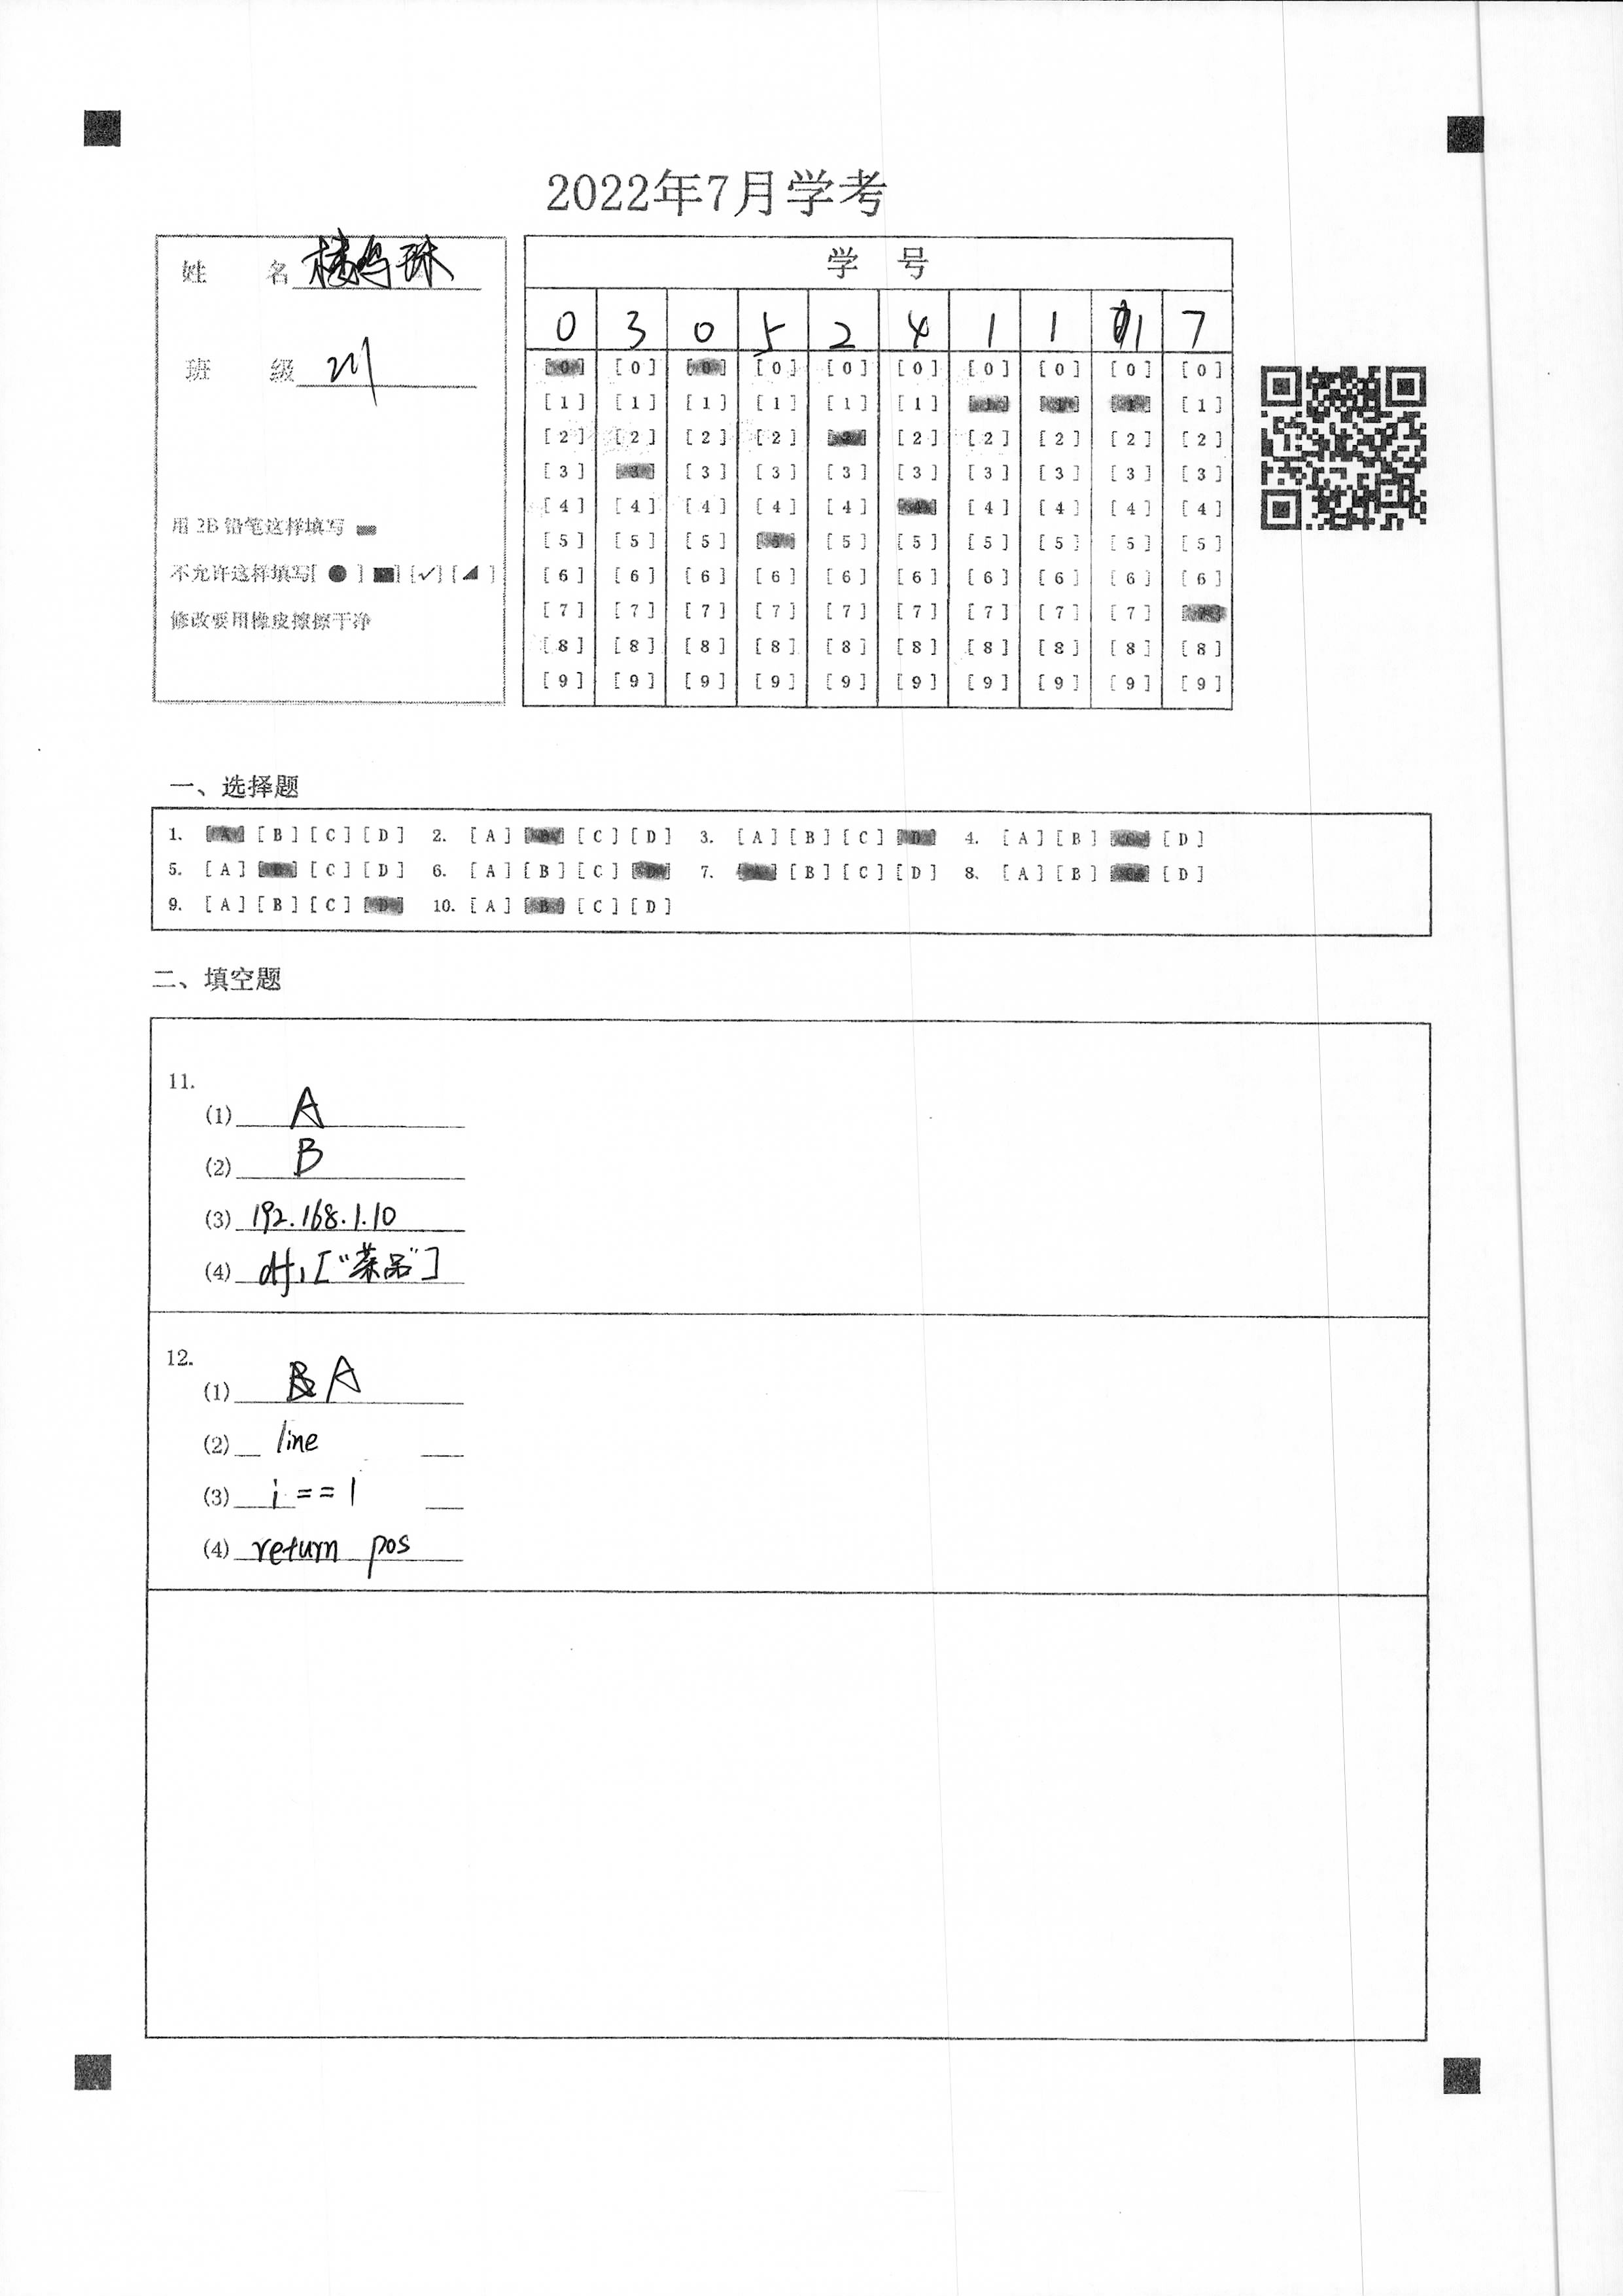 2022年7月学考
姓 名 楼鸣珠
班 级 211
用 2B 铅笔这样填写
不允许这样填写[ ● ] [■] [✓] [◢ ]
修改要用橡皮擦擦干净
学 号
0 3 0 5 2 4 1 1 1 7
[0] [0] [0] [0] [0] [0] [0] [0] [0] [0]
[1] [1] [1] [1] [1] [1] [1] [1] [1] [1]
[2] [2] [2] [2] [2] [2] [2] [2] [2] [2]
[3] [3] [3] [3] [3] [3] [3] [3] [3] [3]
[4] [4] [4] [4] [4] [4] [4] [4] [4] [4]
[5] [5] [5] [5] [5] [5] [5] [5] [5] [5]
[6] [6] [6] [6] [6] [6] [6] [6] [6] [6]
[7] [7] [7] [7] [7] [7] [7] [7] [7] [7]
[8] [8] [8] [8] [8] [8] [8] [8] [8] [8]
[9] [9] [9] [9] [9] [9] [9] [9] [9] [9]
一、选择题
1. [A] [B] [C] [D] 2. [A] [B] [C] [D] 3. [A] [B] [C] [D] 4. [A] [B] [C] [D]
5. [A] [B] [C] [D] 6. [A] [B] [C] [D] 7. [A] [B] [C] [D] 8. [A] [B] [C] [D]
9. [A] [B] [C] [D] 10. [A] [B] [C] [D]
二、填空题
11.
(1) A
(2) B
(3) 192.168.1.10
(4) df1["菜品"]
12.
(1) A
(2) line
(3) i==1
(4) return pos